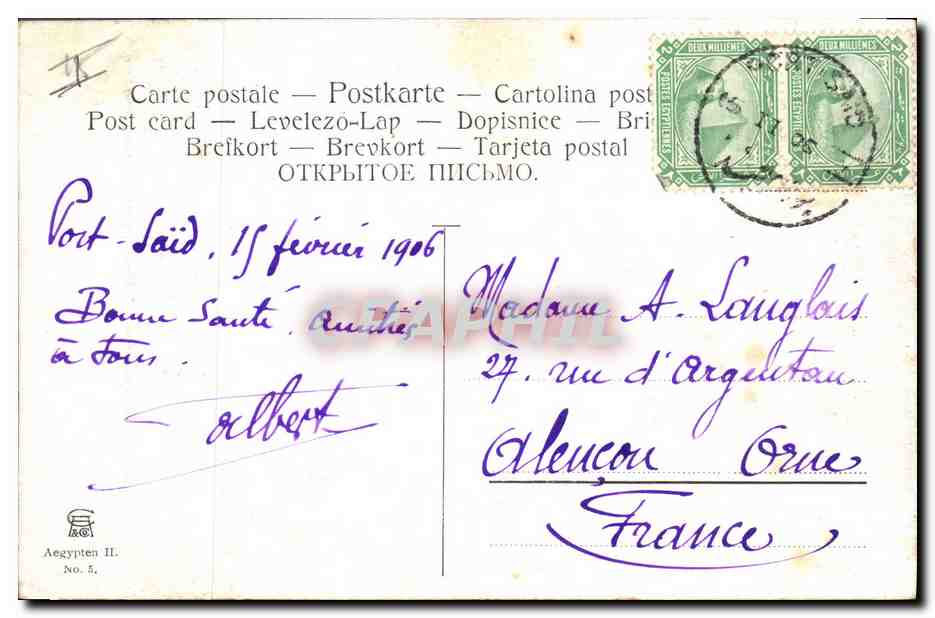 Carte postale — Postkarte — Cartolina post
Post card — Levelező-Lap — Dopisnice — Bri
Brefkort — Brevkort — Tarjeta postal
ОТКРЫТОЕ ПИСЬМО.
DEUX MILLIÈMES
POSTES EGYPTIENNES
DEUX MILLIÈMES
POSTES EGYPTIENNES
PORT SAID
Port-Saïd, 15 février 1906
Bonne santé. Amitiés
à tous.
Albert
Madame A. Langlais
27. rue d'Argentan
Alençon Orne
France
CPAPHIL
Aegypten II.
No. 5.